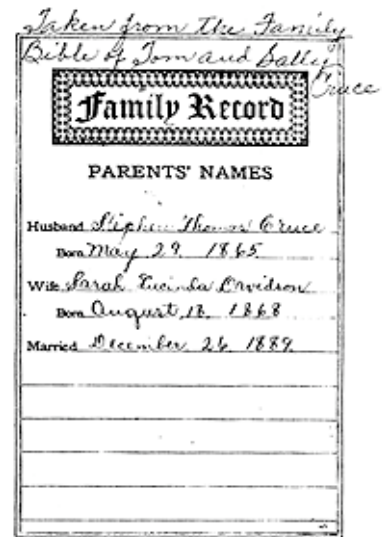 Taken from the Family
Bible of Tom and Sally
Cruce
Family Record
PARENTS' NAMES
Husband Stephen Thomas Cruce
Born May 29 1865
Wife Sarah Lucinda Davidson
Born August 18 1868
Married December 26 1889